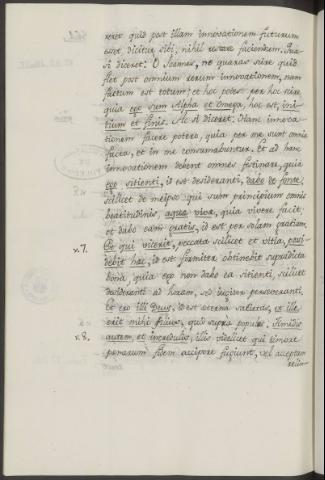 reret quid post illam innovationem futurum
esset, dicitur sibi, nihil restare faciendum. Qua-
si diceret: O Joannes, ne quæras scire quid
fiet post omnium rerum innovationem, nam
factum est totum; et hoc potes per hoc scire,
quia ego sum Alpha et Omega, hoc est, ini-
tium et finis. Ac si diceret. Hanc innova-
tionem facere potero, quia per me sunt omnia
facta, et in me consumabuntur. Et ad hanc
innovationem debent omnes festinare, quia
ego sitienti, id est desideranti, dabo de fonte,
scilicet de meipso qui sum principium omnis
beatitudinis, aquæ vivæ, quia vivere facit;
et dabo eam gratis, id est per solam gratiam.
v. 7. Et qui vicerit, peccata scilicet et vitia, possi-
debit hæc, id est firmiter obtinebit supradicta
bona, quia ego non dabo ea sitienti, scilicet
desideranti ad horam, sed jugiter perseveranti.
Et ero illi Deus, id est æterna satietas, et ille
erit mihi filius, quod supra populus. Timidis
v. 8. autem et incredulis, illis videlicet qui timore
pœnarum fidem accipere fugiunt, vel acceptam